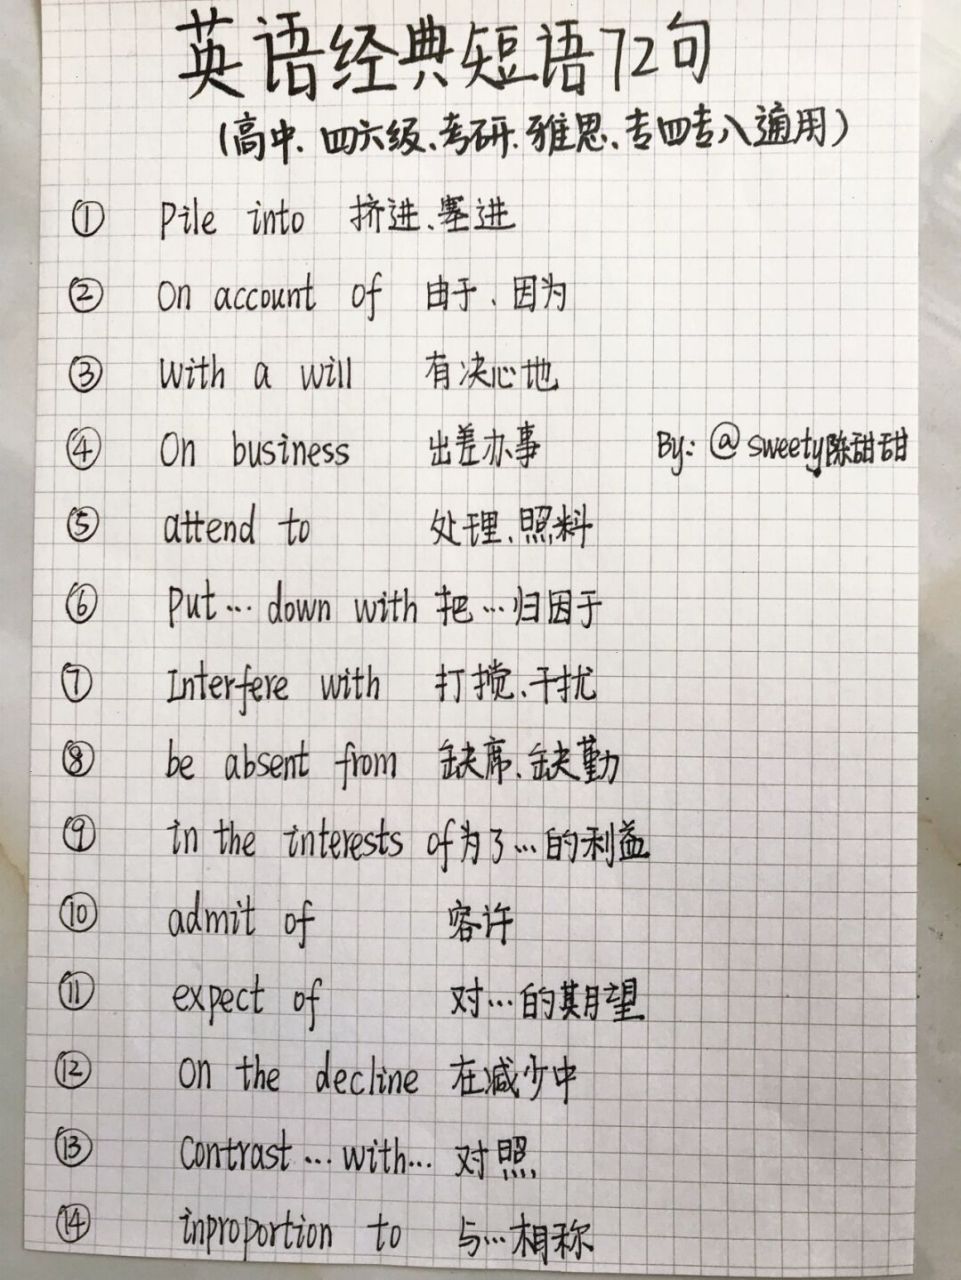 英语经典短语72句
(高中、四六级、考研、雅思、专四专八通用)
① Pile into 挤进、塞进
② On account of 由于、因为
③ With a will 有决心地
④ On business 出差办事 By: @sweety陈甜甜
⑤ attend to 处理、照料
⑥ Put…down with 把…归因于
⑦ Interfere with 打搅、干扰
⑧ be absent from 缺席、缺勤
⑨ in the interests of 为了…的利益
⑩ admit of 容许
⑪ expect of 对…的期望
⑫ On the decline 在减少中
⑬ Contrast…with… 对照
⑭ inproportion to 与…相称